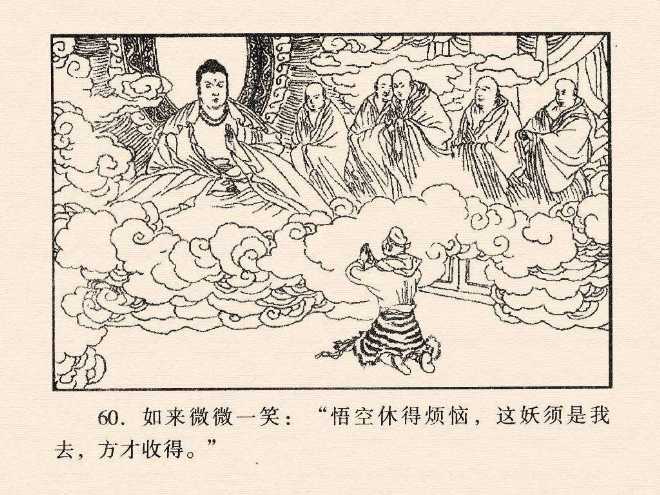 60. 如来微微一笑：“悟空休得烦恼，这妖须是我
去，方才收得。”